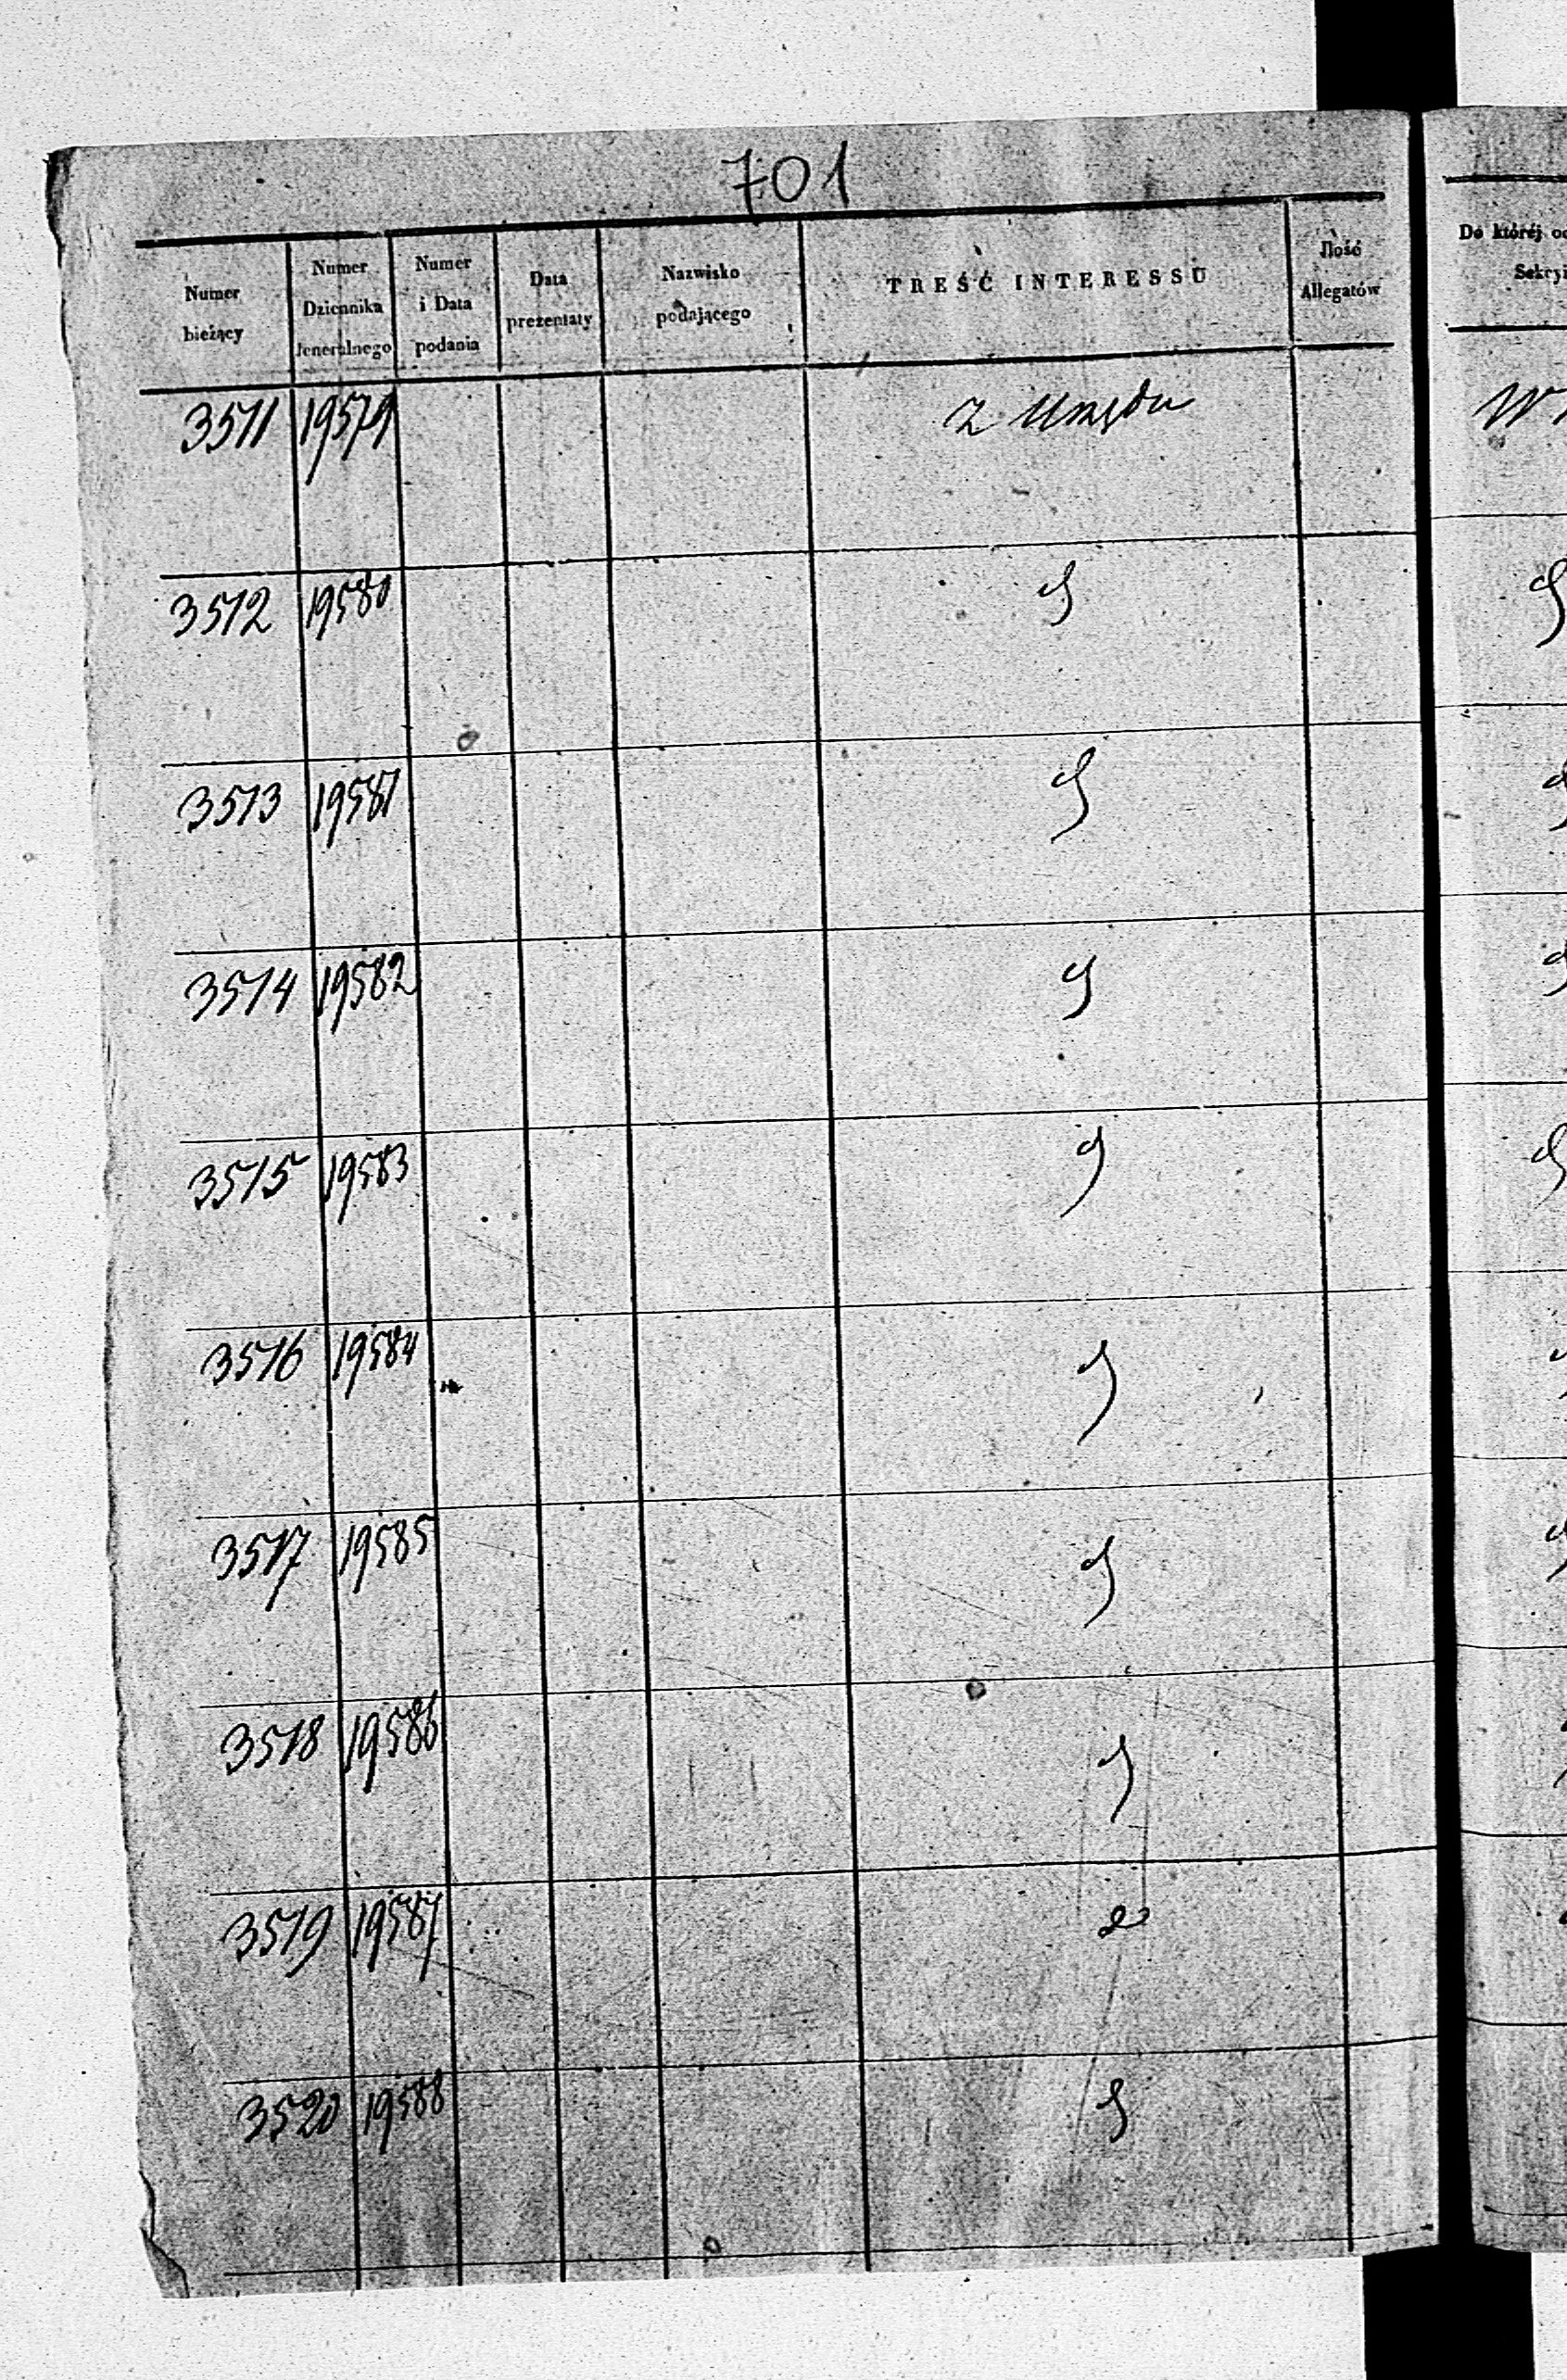 701
Numer bieżący
Numer Dziennika Jeneralnego
Numer i Data podania
Data prezentaty
Nazwisko podającego
TREŚĆ INTERESSU
Ilość Allegatów
Do któréj
3511 19579 z Urzędu
3512 19580
3513 19581
3514 19582
3515 19583
3516 19584
3517 19585
3518 19586
3519 19587
3520 19588